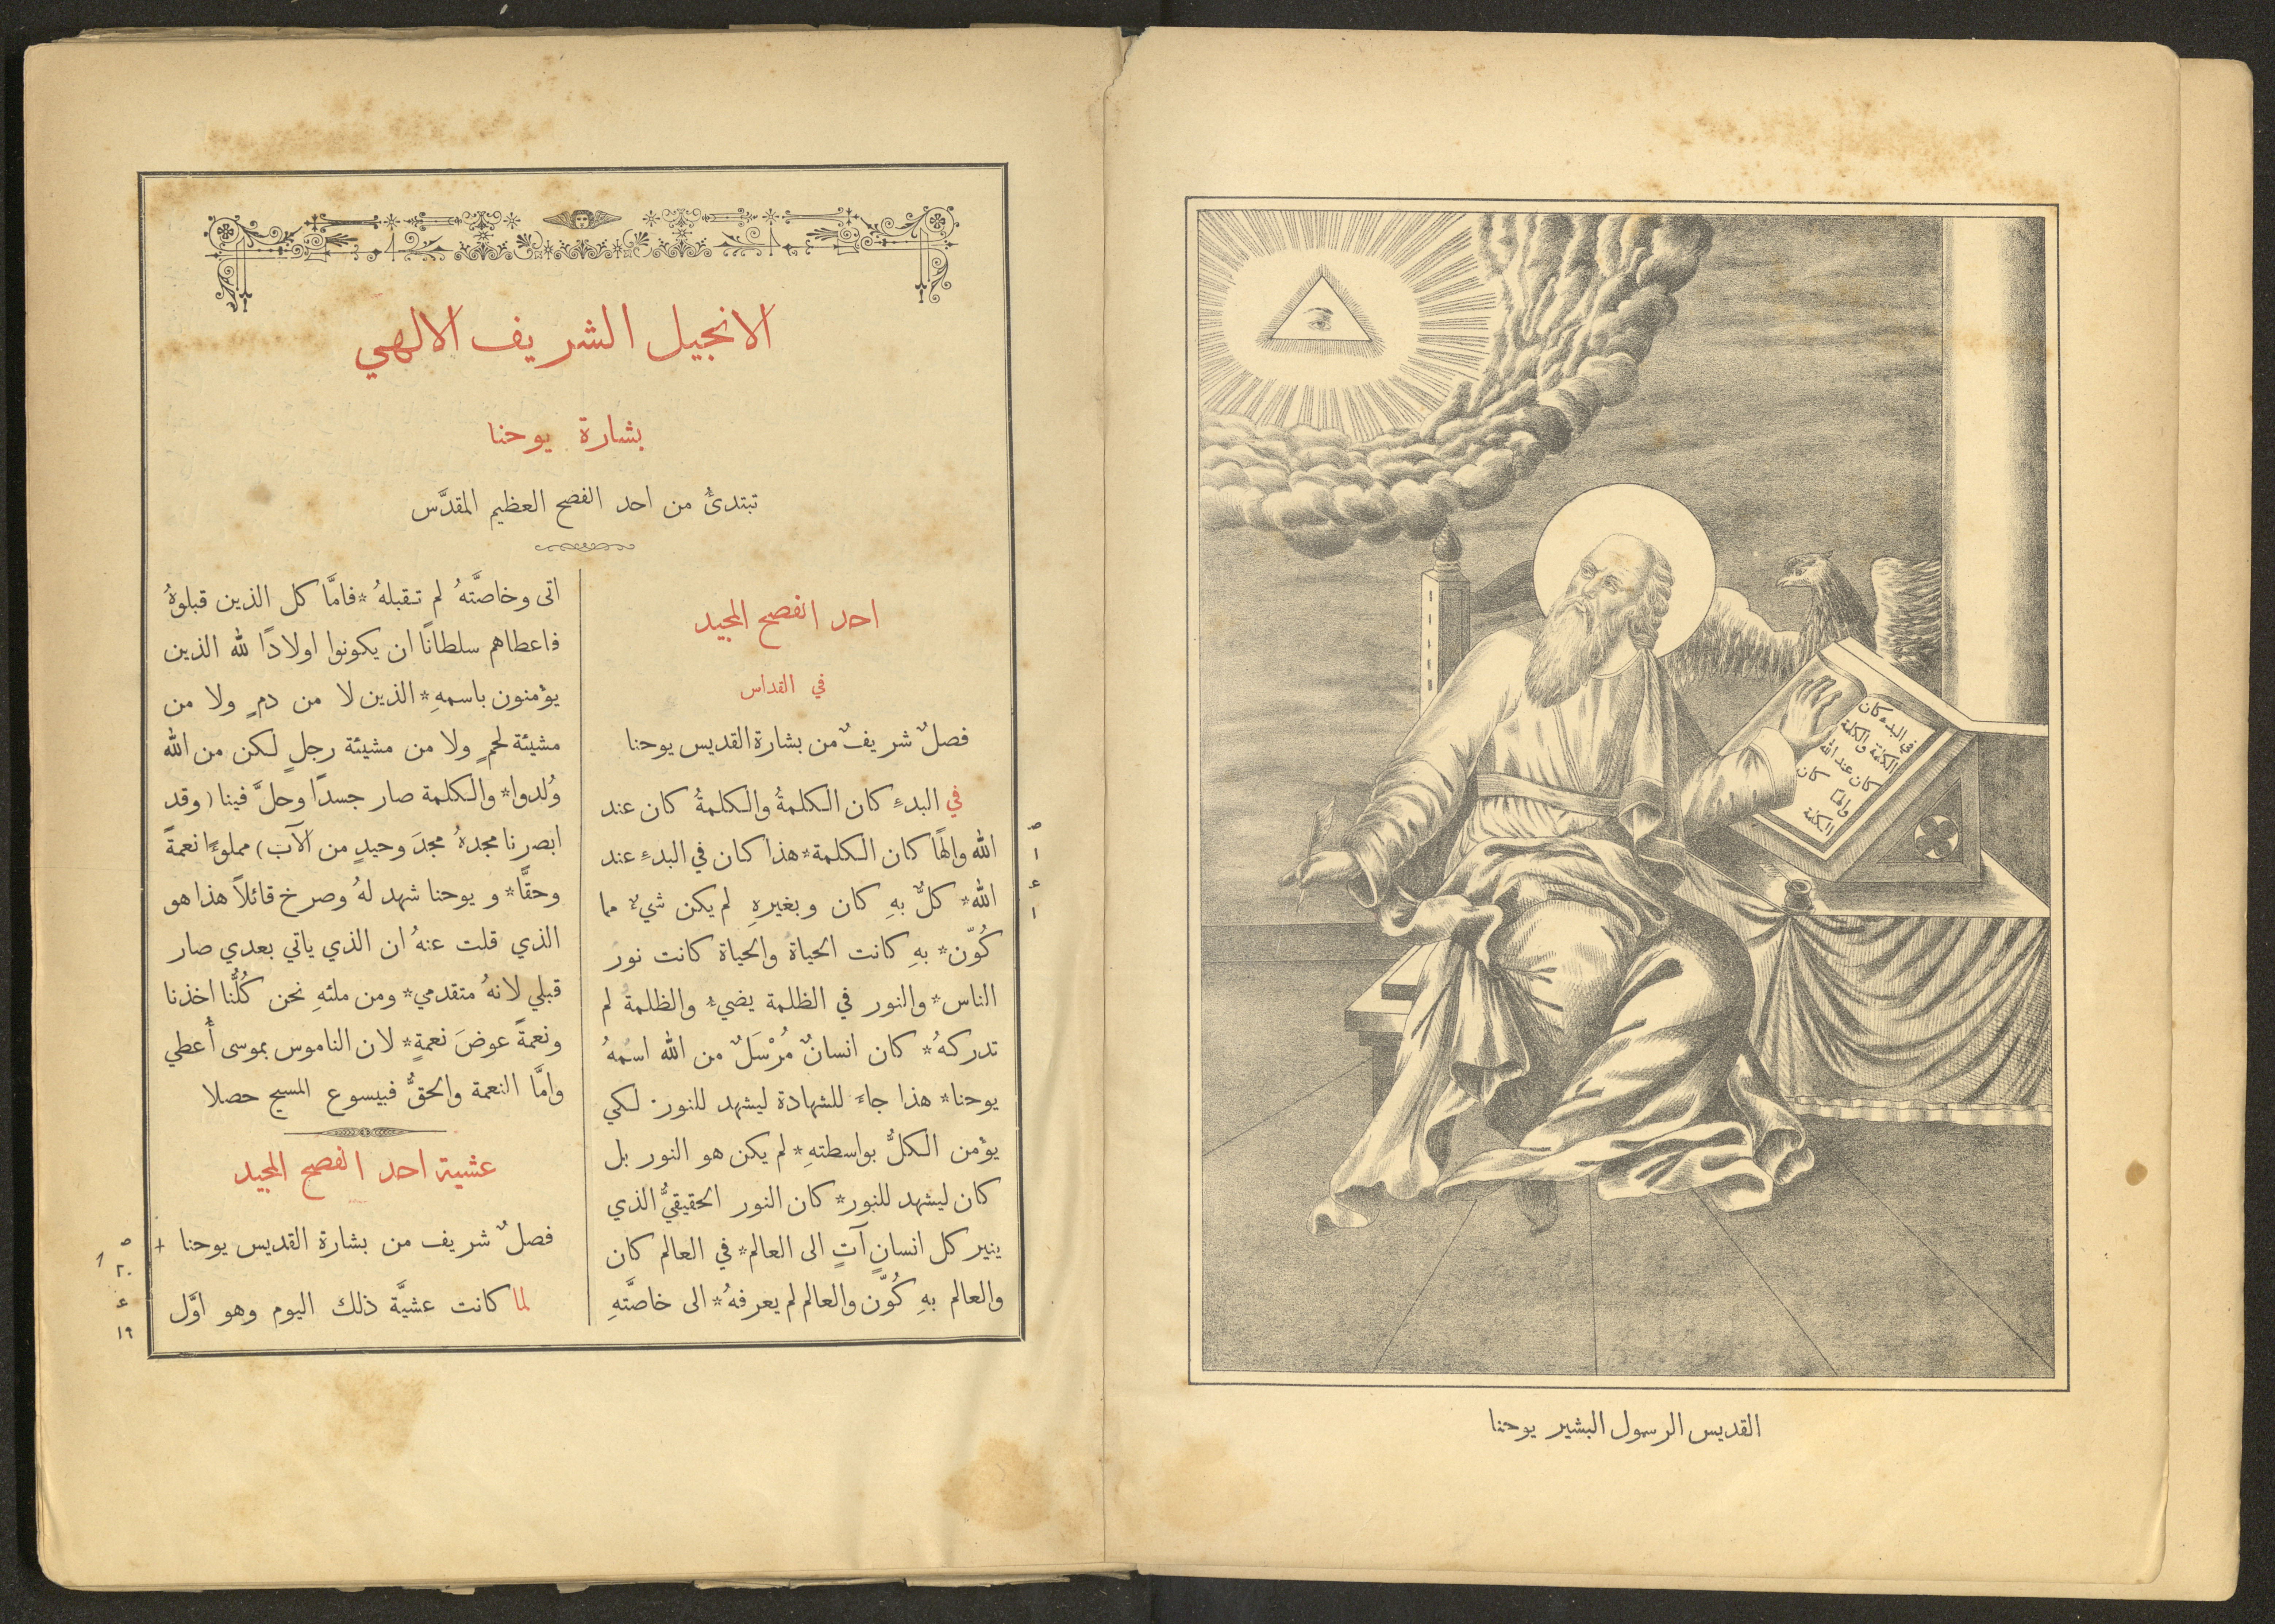 في البدء كان
الكلمة والكلمة
كان عند الله
والها كان
الكلمة
القديس الرسول البشير يوحنا
الانجيل الشريف الالهي
بشارة يوحنا
تبتدئُ من احد الفصح العظيم المقدَّس
احد الفصح المجيد
في القداس
فصلٌ شريفٌ من بشارة القديس يوحنا
في البدءِ كان الكلمةُ والكلمةُ كان عند
الله والهًا كان الكلمة * هذا كان في البدءِ عند
الله * كلٌّ بهِ كان وبغيرهِ لم يكن شيءٌ مما
كُوّن * بهِ كانت الحياة والحياة كانت نور
الناس * والنور في الظلمة يضيءُ والظلمة لم
تدركهُ * كان انسانٌ مُرْسَلٌ من الله اسمهُ
يوحنا * هذا جاءَ للشهادة ليشهد للنور. لكي
يؤمن الكلُّ بواسطتهِ * لم يكن هو النور بل
كان ليشهد للنور * كان النور الحقيقيُّ الذي
ينير كل انسانٍ آتٍ الى العالم * في العالم كان
والعالم بهِ كُوّن والعالم لم يعرفهُ * الى خاصَّتهِ
ص
١
ع
١
اتى وخاصَّتهُ لم تقبلهُ * فامَّا كل الذين قبلوهُ
فاعطاهم سلطانًا ان يكونوا اولادًا لله الذين
يؤمنون باسمهِ * الذين لا من دمٍ ولا من
مشيئة لحمٍ ولا من مشيئة رجلٍ لكن من الله
وُلدوا * والكلمة صار جسدًا وحلَّ فينا (وقد
ابصرنا مجدهُ مجدَ وحيدٍ من الآب) مملوءًا نعمةً
وحقًّا * ويوحنا شهد لهُ وصرخ قائلاً هذا هو
الذي قلت عنهُ ان الذي ياتي بعدي صار
قبلي لانهُ متقدمي * ومن ملئهِ نحن كُلُّنا اخذنا
ونعمةً عوضَ نعمةٍ * لان الناموس بموسى أُعطي
وامَّا النعمة والحقُّ فبيسوع المسيح حصلا
عشية احد الفصح المجيد
فصلٌ شريف من بشارة القديس يوحنا
لما كانت عشيَّة ذلك اليوم وهو اوَّل
ص
٢٠
ع
١٩